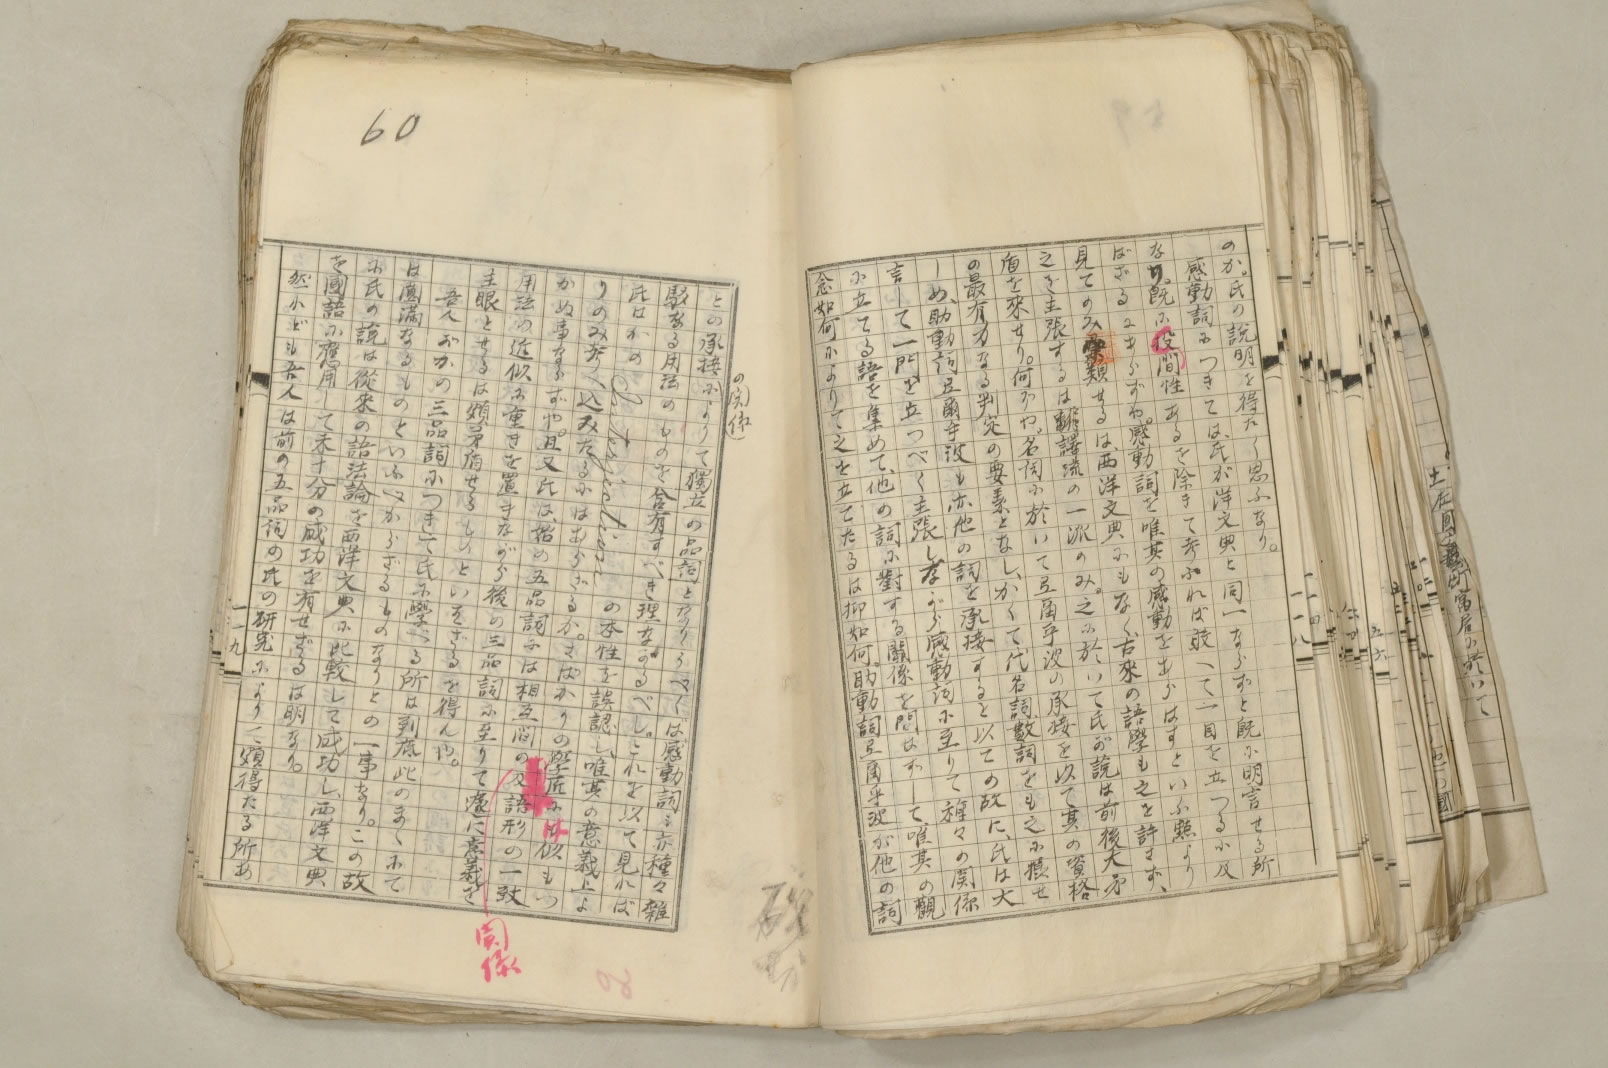 のか。氏の説明を得たく思ふなり。
感動詞につきては、氏が洋文典と同一ならずと既に明言せる所
なり。既に投間性あるを除きて考ふれば敢へて一目を立つるに及
ばざるにあらずや。感動詞を唯其の感動をあらはすといふ點より
見てのみ類せるは西洋文典にもなく、古來の語學も之を許さず、
之を主張するは飜譯流の一派のみ。之に於いて氏が説は前後大矛
盾を來せり。何ぞや。名詞に於いて弖爾乎波の承接を以て其の資格
の最有力なる判定の要素となし、かくて代名詞數詞をも之に據せ
しめ、助動詞弖爾乎波も亦他の詞を承接するを以ての故に、氏は大
言して一門を立つべく主張しながら感動詞に至りて種々の関係
に立てる語を集めて、他の詞に對する關係を問はずして、唯其の觀
念如何によりて之を立てたるは抑如何。助動詞弖爾乎波が他の詞
一一八
60
との承接によりて獨立の品詞となりうべくは感動詞も亦種々雜
の関係
駁なる用法のものを含有すべき理なかるべし。これを以て見れば
氏はかの Interjection の本性を誤認し、唯其の意義上よ
りのみ考へ込みたるにはあらざるか。さばかりの學匠には似もつ
かぬ事ならずや。且又氏は始の五品詞には相互間の及語形の一致
用法の近似に重きを置きながら後の三品詞に至りて遂に意義を
主眼とせるは頗矛盾せるものといはざるを得んや。
吾人がかの三品詞につきて氏に學べる所は到底此のまゝにて
は圓滿なるものといふべからざるものなりとの一事なり。この故
に氏の説は從來の語法論を西洋文典に比較して成功し、西洋文典
を國語に應用して未十分の成功を有せざるは明なり。
然れども吾人は前の五品詞の氏の研究によりて頗得たる所あ
一一九
関係